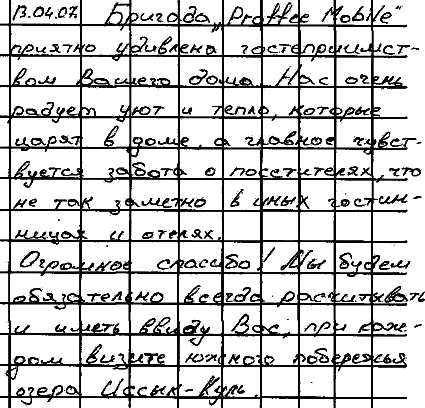 13.04.07. Бригада „Proffee Mobile"
приятно удивлена гостеприимст-
вом Вашего дома. Нас очень
радует уют и тепло, которые
царят в доме, а главное чувст-
вуется забота о посетителях, что
не так заметно в иных гостин-
ницах и отелях.
Огромное спасибо! Мы будем
обязательно всегда расчитывать
и иметь ввиду Вас, при каж-
дом визите южного побережья
озера Иссык-Куль.